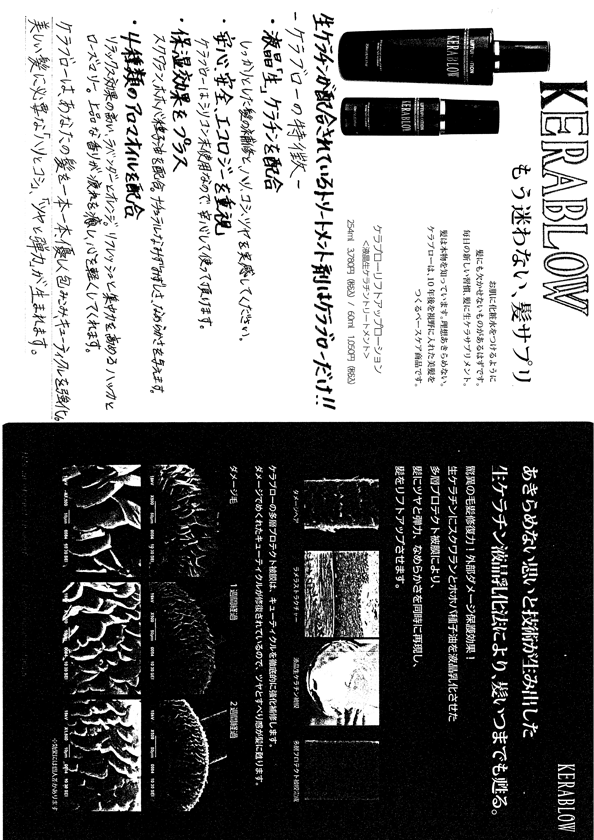 KERABLOW
もう迷わない、髪サプリ
お肌に化粧水をつけるように
髪にも欠かせないものがあるはずです。
毎日の新しい習慣、髪に生ケラサプリメント。
髪は本物を知っています。理想あきらめない。
ケラブローは、10年後を視野に入れた美髪を
つくるベースケア商品です。
ケラブローリフトアップローション
<液晶生ケラチントリートメント>
254ml 3,780円(税込) / 60ml 1,050円(税込)
KERABLOW
KERABLOW
生ケラチンが配合されているトリートメント剤はケラブローだけ!!
-ケラブローの特徴-
・液晶「生」ケラチンを配合
しっかりした髪の補修と、ハリ、コシ、ツヤを実感してください。
・安心 安全 エコロジーを重視
ケラブローはシリコン未使用なので 安心して使って頂けます。
・保湿効果をプラス
・4種類のアロマオイルを配合
リラックス効果の高い、ラベンダーとオレンジ。リフレッシュと集中力を高める ハッカと
ローズマリー。上品な香りが疲れを癒し、心を軽くしてくれます。
ケラブローはあなたの髪を一本一本優しく包みこみキューティクルを強化。
美しい髪に必要な「ハリとコシ」、「ツヤと弾力」が生まれます。
KERABLOW
あきらめない思いと技術が生み出した
生ケラチン液晶乳化法により、髪いつまでも甦る。
驚異の毛髪修復力!外部ダメージ保護効果!
生ケラチンにスクワランとホホバ種子油を液晶乳化させた
多層プロテクト被膜により、
髪にツヤと弾力、なめらかさを同時に再現し、
髪をリフトアップさせます。
ダメージヘア
ラメラストラクチャー
液晶生ケラチン被膜
多層プロテクト被膜完成
ケラブローの多層プロテクト被膜は、キューティクルを徹底的に強化補修します。
ダメージでめくれたキューティクルが修復されているので、ツヤとすべり感が髪に甦ります。
ダメージ毛
1週間経過
2週間経過
※効果には個人差があります